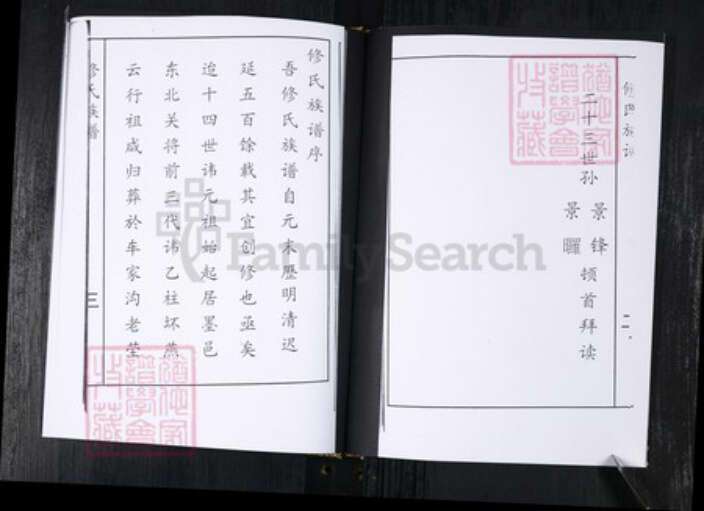 二十三世孙 景锋
景曜 顿首拜读
修氏族谱
二
修氏族谱序
吾修氏族谱自元末歷明清迟
延五百馀载其宜创修也亟矣
迨十四世讳元祖始起居墨邑
东北关将前三代讳乙柱坏燕
云行祖咸归葬於车家沟老茔
修氏族谱
三
FamilySearch